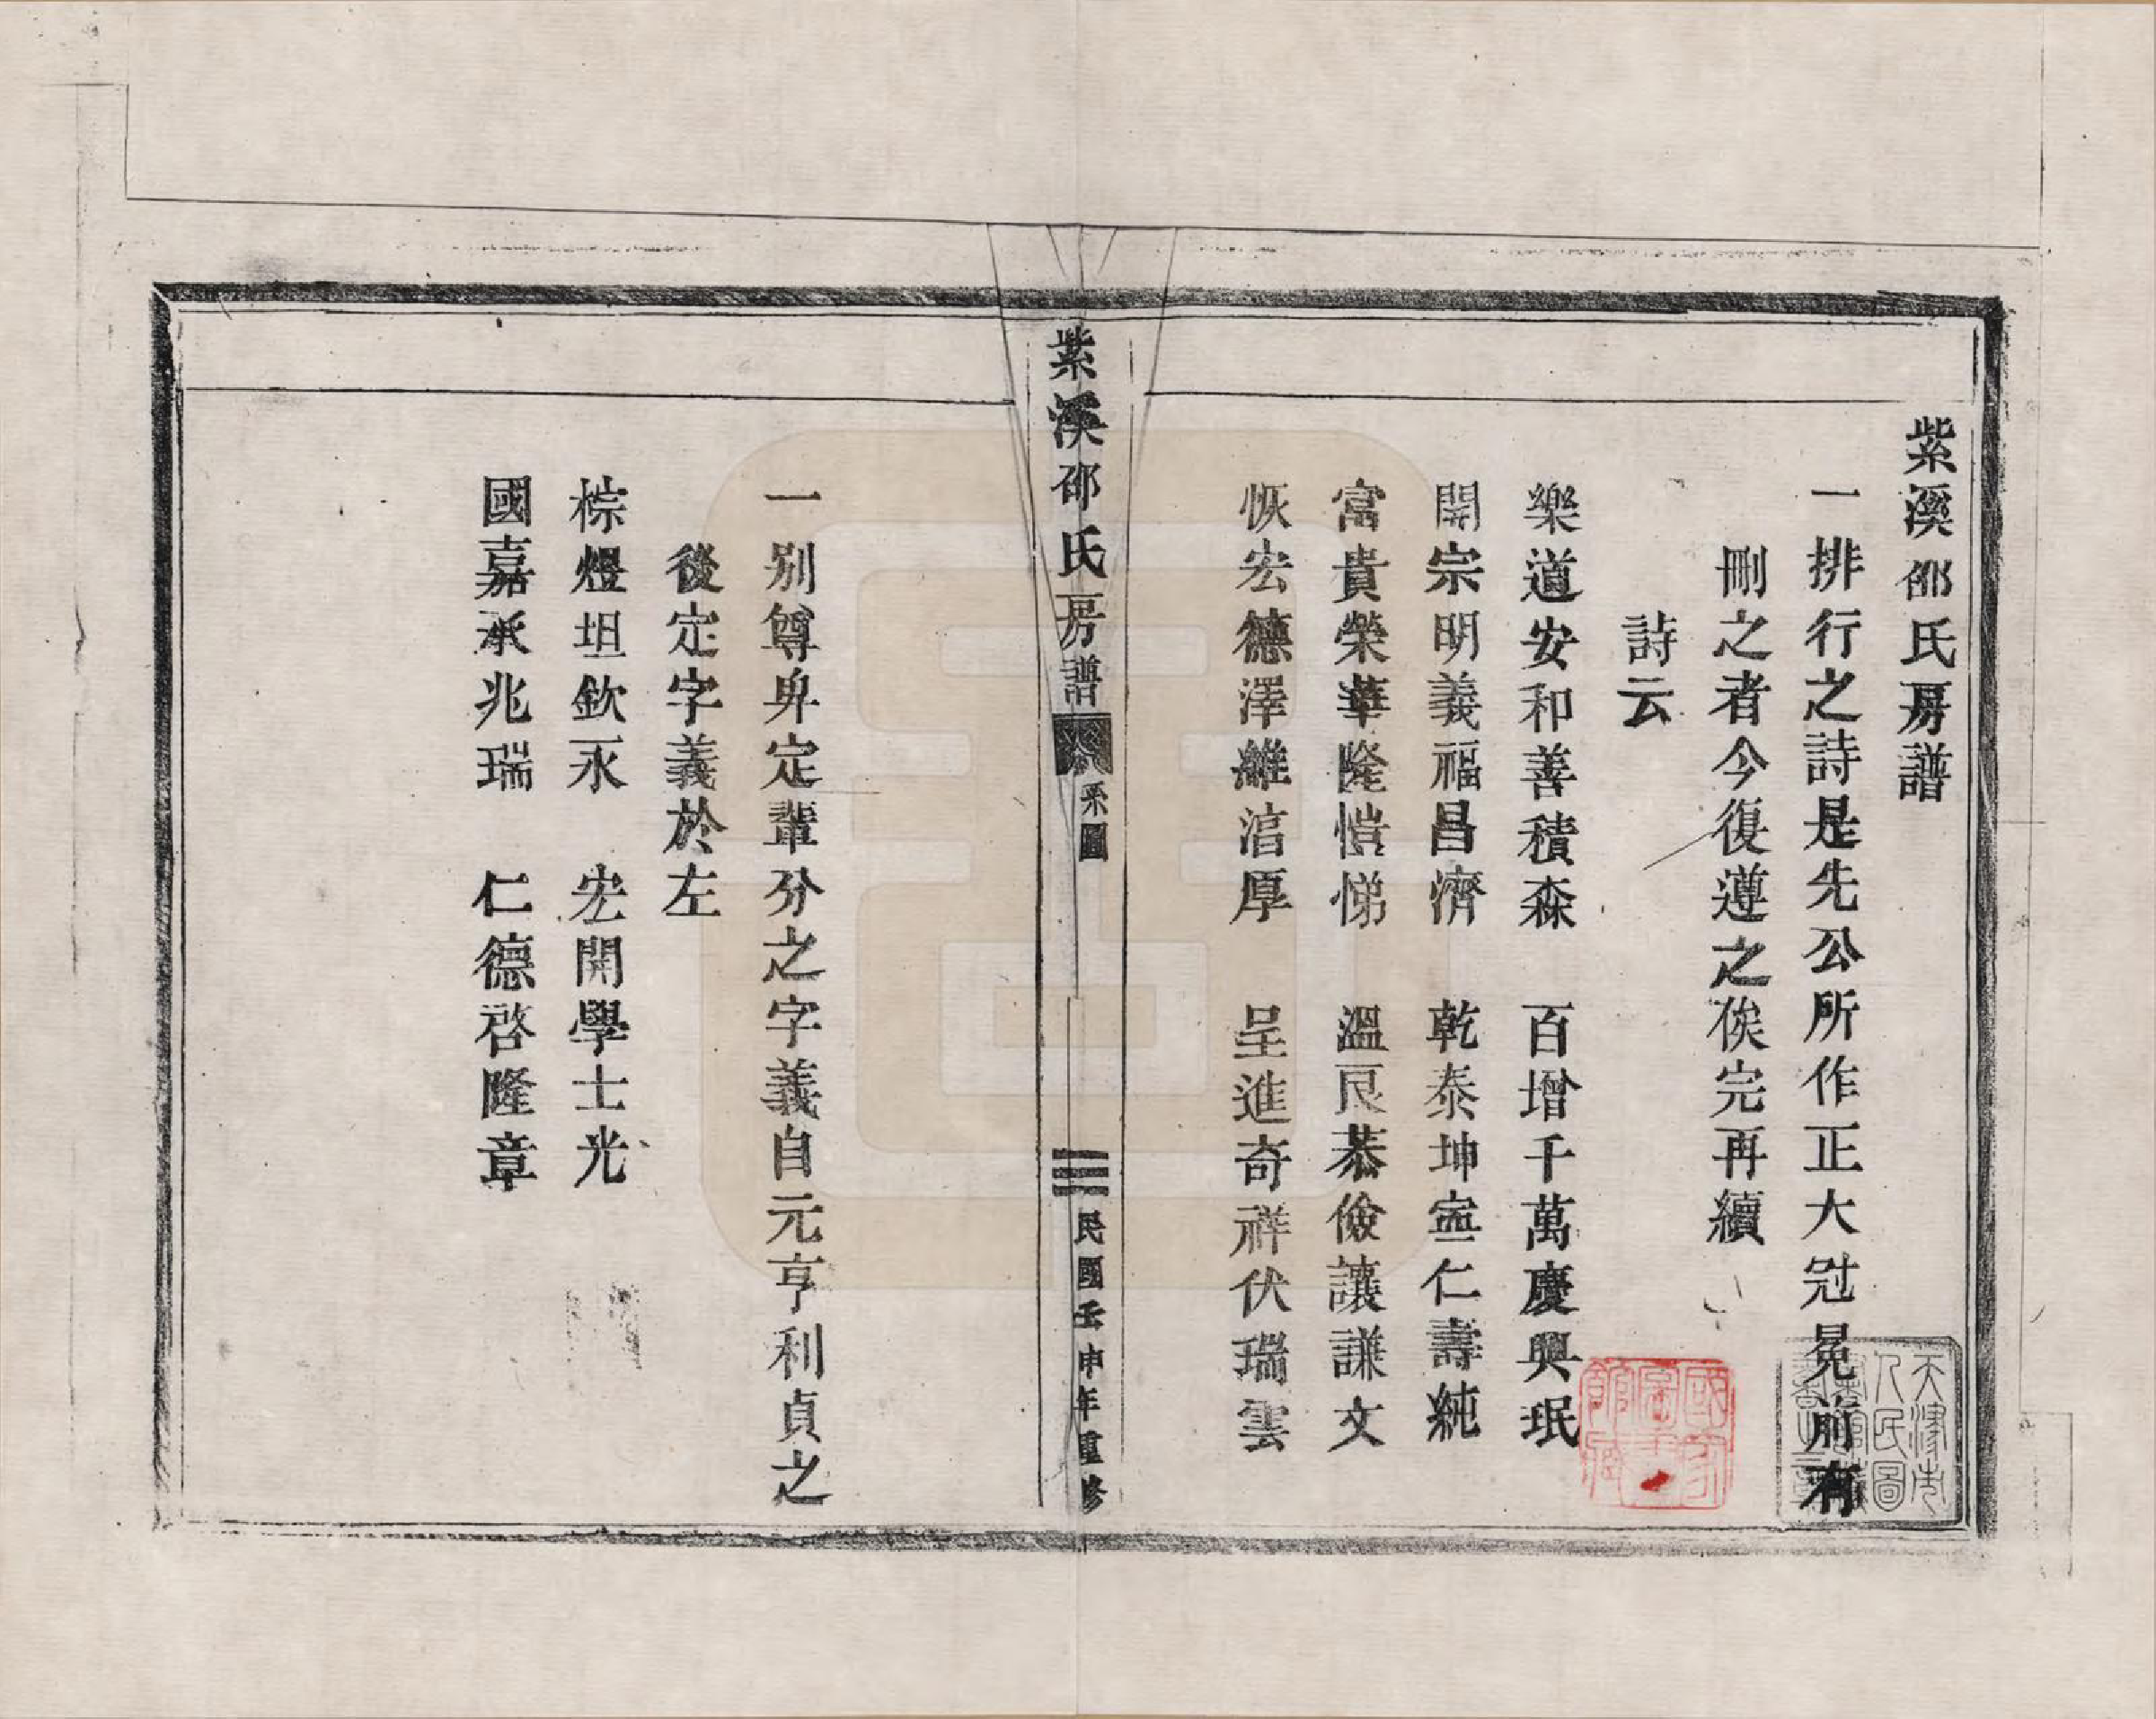 紫溪邵氏房譜
一排行之詩是先公所作正大冠冕前有
刪之者今復遵之俟完再續
詩云
樂道安和善積森　百增千萬慶興珉
開宗明義福昌濟　乾泰坤寍仁壽純
富貴榮華隆愷悌　溫良恭儉讓謙文
恢宏德澤維涪厚　呈進奇祥伏瑞雲
紫溪邵氏房譜　系圖　民國壬申年重修
一別尊卑定輩分之字義自元亨利貞之
後定字義於左
棕煜坦欽永　宏開學士光
國嘉承兆瑞　仁德啓隆章
天津市人民圖書館藏書之章
國家圖書館藏